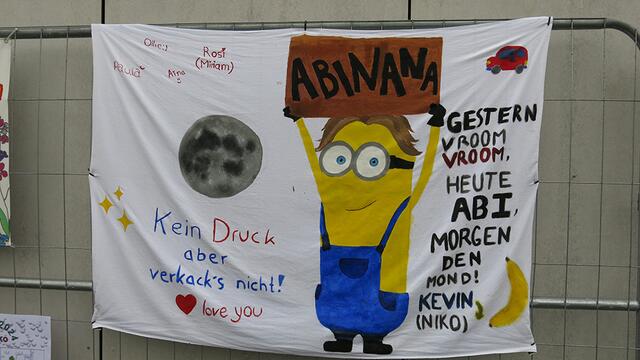 Oliwu
Rosi
(Miriam)
Paula
Arna
ABINANA
GESTERN
VROOM
VROOM,
HEUTE
ABI,
MORGEN
DEN
MOND!
KEVIN
(NIKO)
Kein Druck
aber
verkack's nicht!
love you
2024